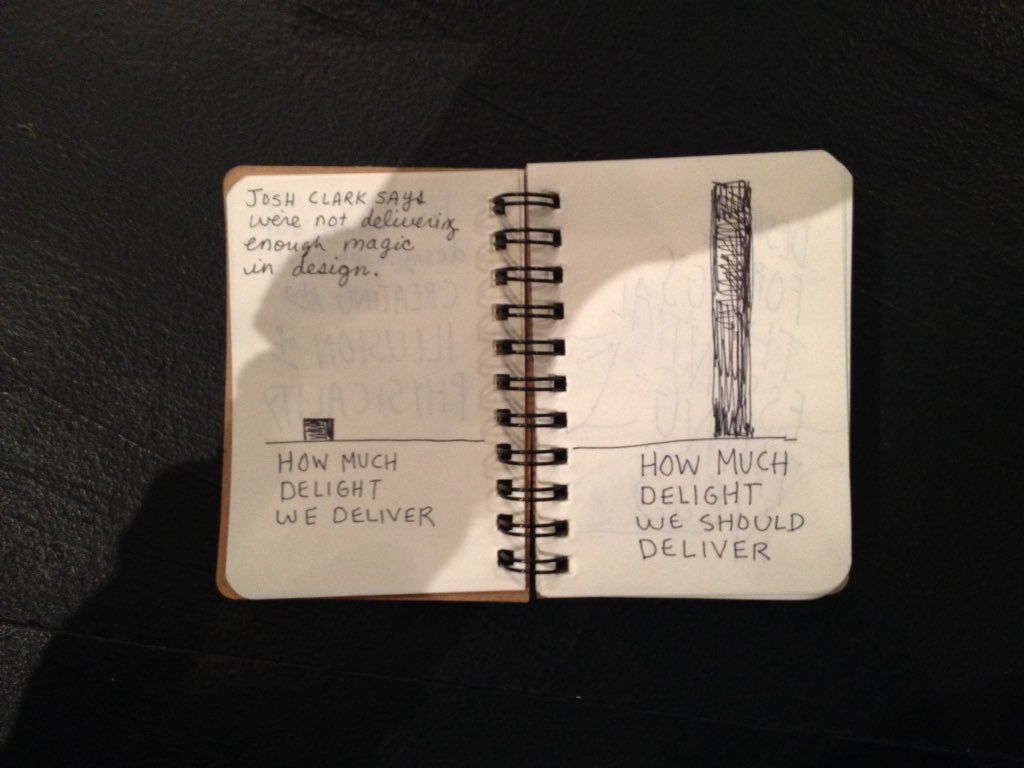 JOSH CLARK SAYS
we're not delivering
enough magic
in design.
HOW MUCH
DELIGHT
WE DELIVER
HOW MUCH
DELIGHT
WE SHOULD
DELIVER